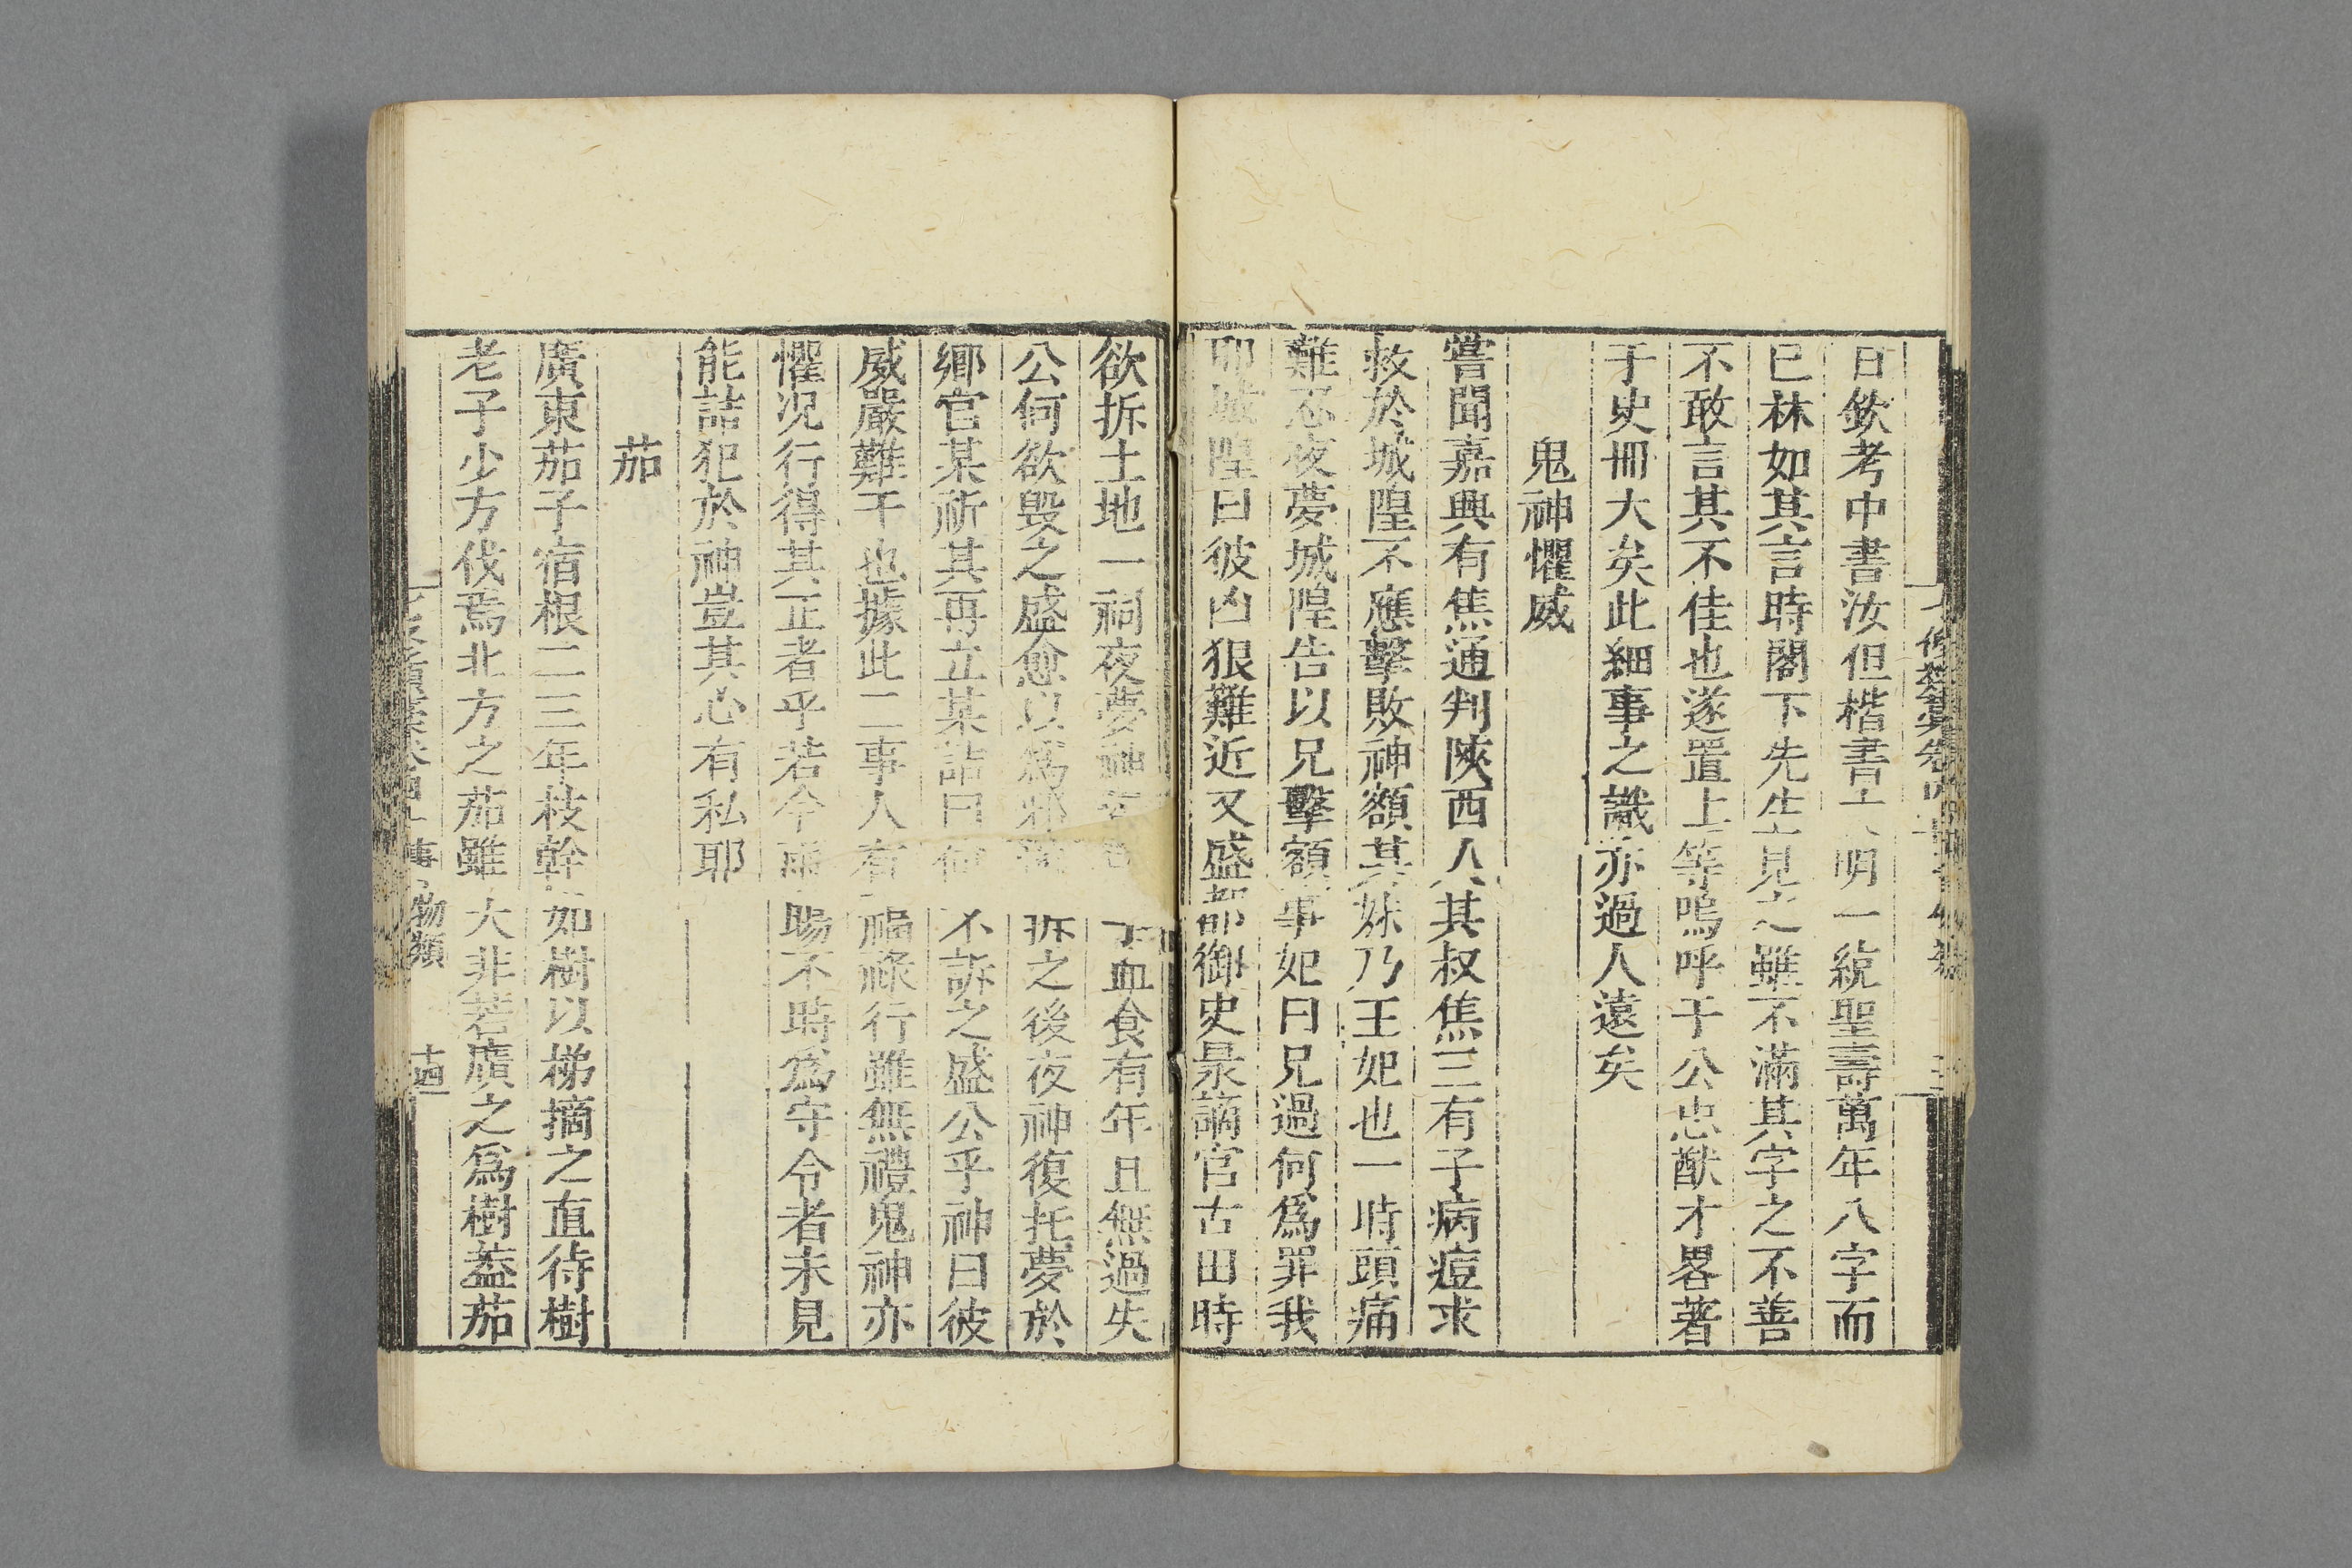 日欽考中書汝但楷書大明一統聖壽萬年八字而
已林如其言時閣下先生見之雖不滿其字之不善
不敢言其不佳也遂置上等嗚呼于公忠猷才畧著
于史冊大矣此細事之識亦過人遠矣
鬼神懼威
嘗聞嘉興有焦通判陝西人其叔焦三有子病痘求
救於城隍不應擊敗神額其妹乃王妃也一時頭痛
難忍夜夢城隍告以兄擊額事妃曰兄過何爲罪我
耶城隍曰彼凶狠難近又盛都御史㫤謫官古田時
欲拆土地一祠夜夢神 血食有年且無過失
公何欲毀之盛愈以爲邪 拆之後夜神復托夢於
鄉官某祈其再立某詰曰何不訴之盛公乎神曰彼
威嚴難干也據此二事人有福祿行雖無禮鬼神亦
懼况行得其正者乎若今雨暘不時爲守令者未見
能詰犯於神豈其心有私耶
茄
廣東茄子宿根二三年枝幹如樹以梯摘之直待樹
老子少方伐焉北方之茄雖大非若廣之爲樹葢茄
七修類藁卷四十 事物類 十四